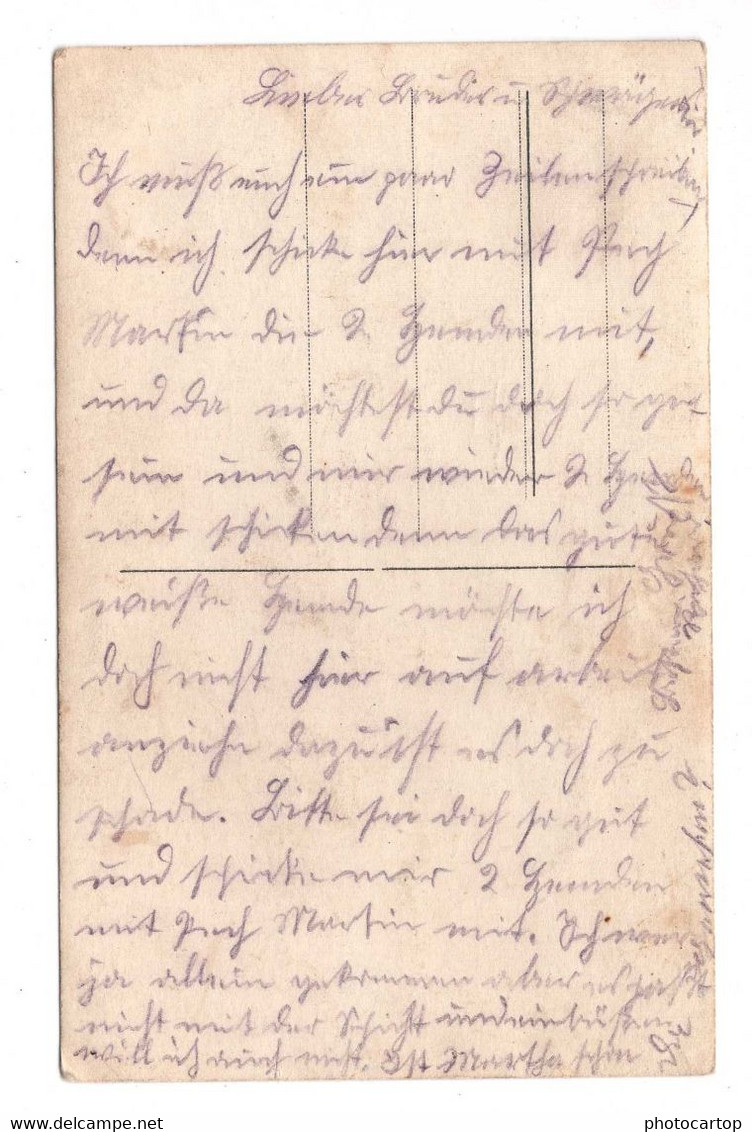 Lieber Bruder u Schwägerin
Ich muß euch ein paar Zeilen schreiben
denn ich schicke hier mit Pech
Martin die 2 Hemden mit,
und da möchtest du doch so gut
sein und mir wieder 2 Hemden
mit schicken denn das gute
weiße Hemde möchte ich
doch nicht hier auf arbeit
anziehn dazu ist es doch zu
schade. Bitte sei doch so gut
und schicke mir 2 Hemden
mit Pech Martin mit. Ich wer
ja allein gekommen aber es paßt
nicht mit der Schicht und einbüßen
will ich auch nicht. Ist Martha schon
photocartop
delcampe.net